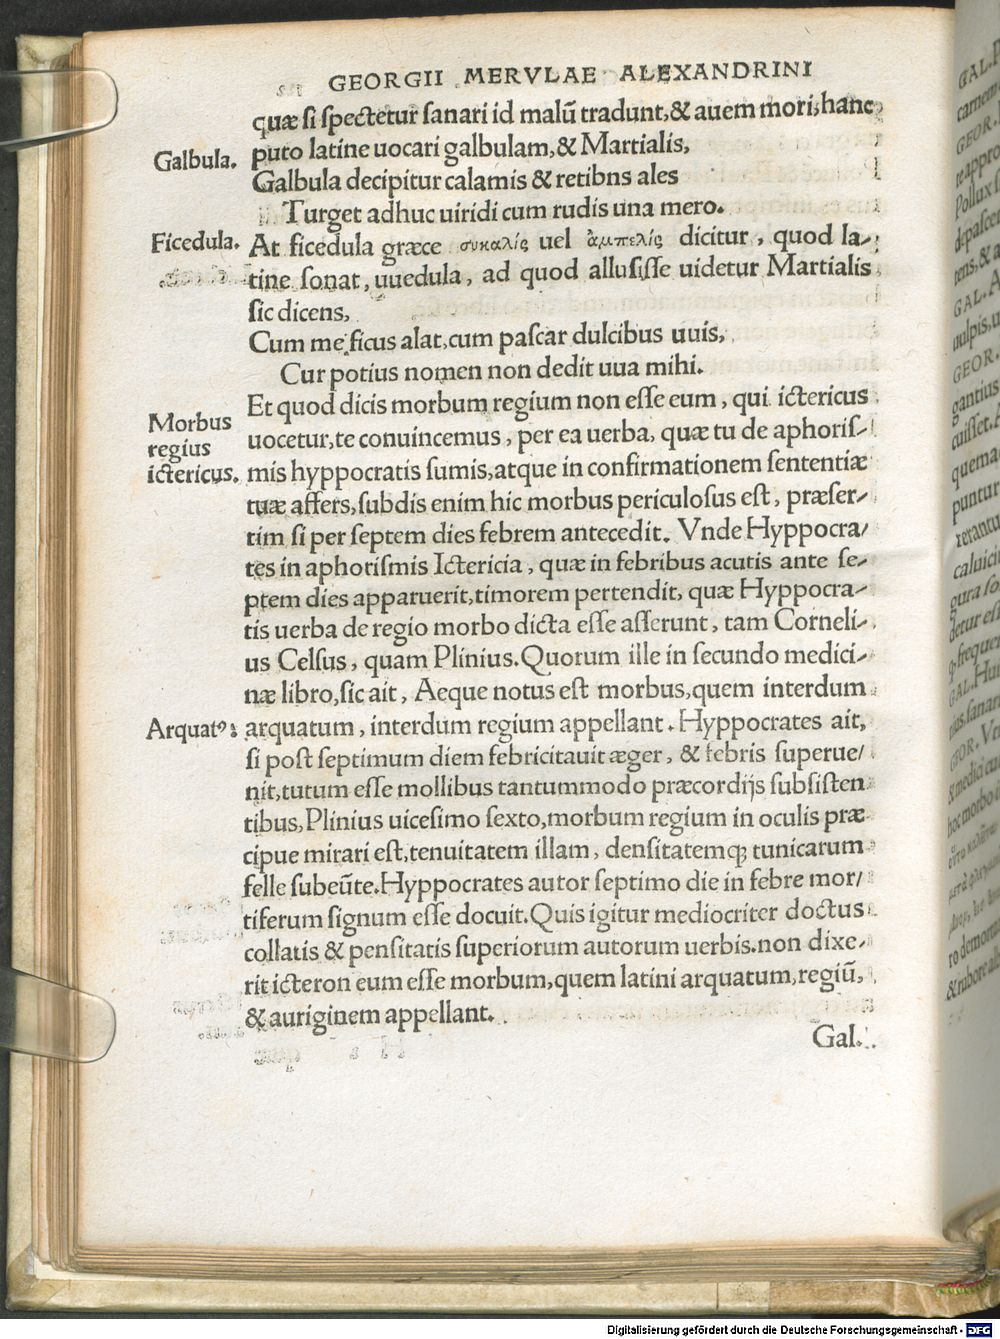 GEORGII MERVLAE ALEXANDRINI
quæ si spectetur sanari id malũ tradunt,& auem mori,hanc
Galbula. puto latine uocari galbulam,& Martialis,
Galbula decipitur calamis & retibns ales
Turget adhuc uiridi cum rudis una mero.
Ficedula. At ficedula græce συκαλὶς uel ἀμπελὶς dicitur, quod la-
tine sonat, uuedula, ad quod allusisse uidetur Martialis
sic dicens,
Cum me ficus alat,cum pascar dulcibus uuis,
Cur potius nomen non dedit uua mihi.
Morbus regius ictericus. Et quod dicis morbum regium non esse eum, qui ictericus
uocetur,te conuincemus, per ea uerba, quæ tu de aphoris-
mis hyppocratis sumis,atque in confirmationem sententiæ
tuæ affers,subdis enim hic morbus periculosus est, præser-
tim si per septem dies febrem antecedit. Vnde Hyppocra-
tes in aphorismis Ictericia, quæ in febribus acutis ante se-
ptem dies apparuerit,timorem pertendit, quæ Hyppocra-
tis uerba de regio morbo dicta esse asserunt, tam Corneli-
us Celsus, quam Plinius.Quorum ille in secundo medici-
næ libro,sic ait, Aeque notus est morbus,quem interdum
Arquatꝰ: arquatum, interdum regium appellant. Hyppocrates ait,
si post septimum diem febricitauit æger, & febris superue-
nit,tutum esse mollibus tantummodo præcordijs subsisten
tibus,Plinius uicesimo sexto,morbum regium in oculis præ
cipue mirari est,tenuitatem illam, densitatemq; tunicarum
felle subeũte.Hyppocrates autor septimo die in febre mor-
tiferum signum esse docuit.Quis igitur mediocriter doctus
collatis & pensitatis superiorum autorum uerbis.non dixe-
rit icteron eum esse morbum,quem latini arquatum,regiũ,
& auriginem appellant.
Gal.
GAL.
carnem
GEOR.
reappro
Pollux
depascen
rens,& a
GAL. A
uulpis,u
GEOR.
gantius
cuisset.
quema
puntur
calui
gura so
detur ess
q; freque
GAL. Hu
ius.sanar
GEOR. Vt
& medici cu
hoc morbo
ro demon
& rubore ab
Digitalisierung gefördert durch die Deutsche Forschungsgemeinschaft - DFG